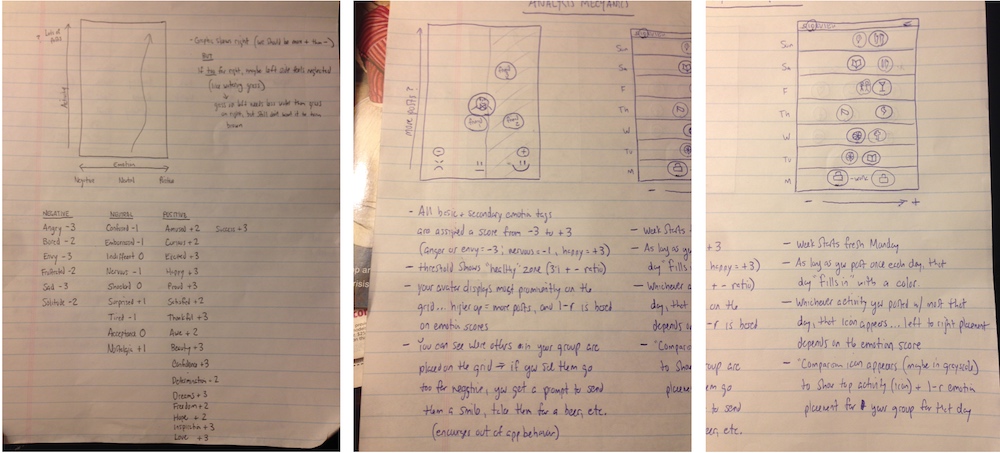 Lots of posts
Activity
Emotion
Negative Neutral Positive
- Graph is shown right (we should be more + than -)
BUT
If too far right, maybe left side gets neglected
(like watering grass)
grass on left needs less water than grass
on right, but still don't want it to turn
brown
NEGATIVE
Angry -3
Bored -2
Envy -3
Frustrated -2
Sad -3
Solitude -2
NEUTRAL
Confused -1
Embarrassed -1
Indifferent 0
Nervous -1
Shocked 0
Surprised +1
Tired -1
Acceptance 0
Nostalgia +1
POSITIVE
Amused +2
Curious +2
Excited +3
Happy +3
Proud +3
Satisfied +2
Thankful +3
Awe +2
Beauty +3
Confidence +3
Determination +2
Dreams +3
Freedom +2
Hope +2
Inspiration +3
Love +3
Success +3
ANALYSIS MECHANICS
More posts?
Su
Sa
F
Th
W
Tu
M
- +
- All basic + secondary emotion tags
are assigned a score from -3 to +3
(anger or envy = -3; nervous = -1, happy = +3)
- threshold shows "healthy" zone (3:1 + - ratio)
- your avatar displays most prominently on the
grid... higher up = more posts, and l-r is based
on emotion scores
- You can see where others in your group are
placed on the grid → if you see them go
too far negative, you get a prompt to send
them a smile, take them for a beer, etc.
(encourages out of app behavior)
- Week starts
- As long as you
day "fills
- Whichever
day, that
depends on
- "Comparison
to show
placement
Sun
Sa
F
Th
W
Tu
M
- work
- +
+3
happy = +3)
+ - ratio)
on the
-r is based
group are
em go
to send
beer, etc.
- Week starts fresh Monday
- As long as you post once each day, that
day "fills in" with a color.
- Whichever activity you posted w/ most that
day, that icon appears... left to right placement
depends on the emotion score
- "Comparison icon appears (maybe in greyscale)
to show top activity (icon) + l-r emotion
placement for your group for that day